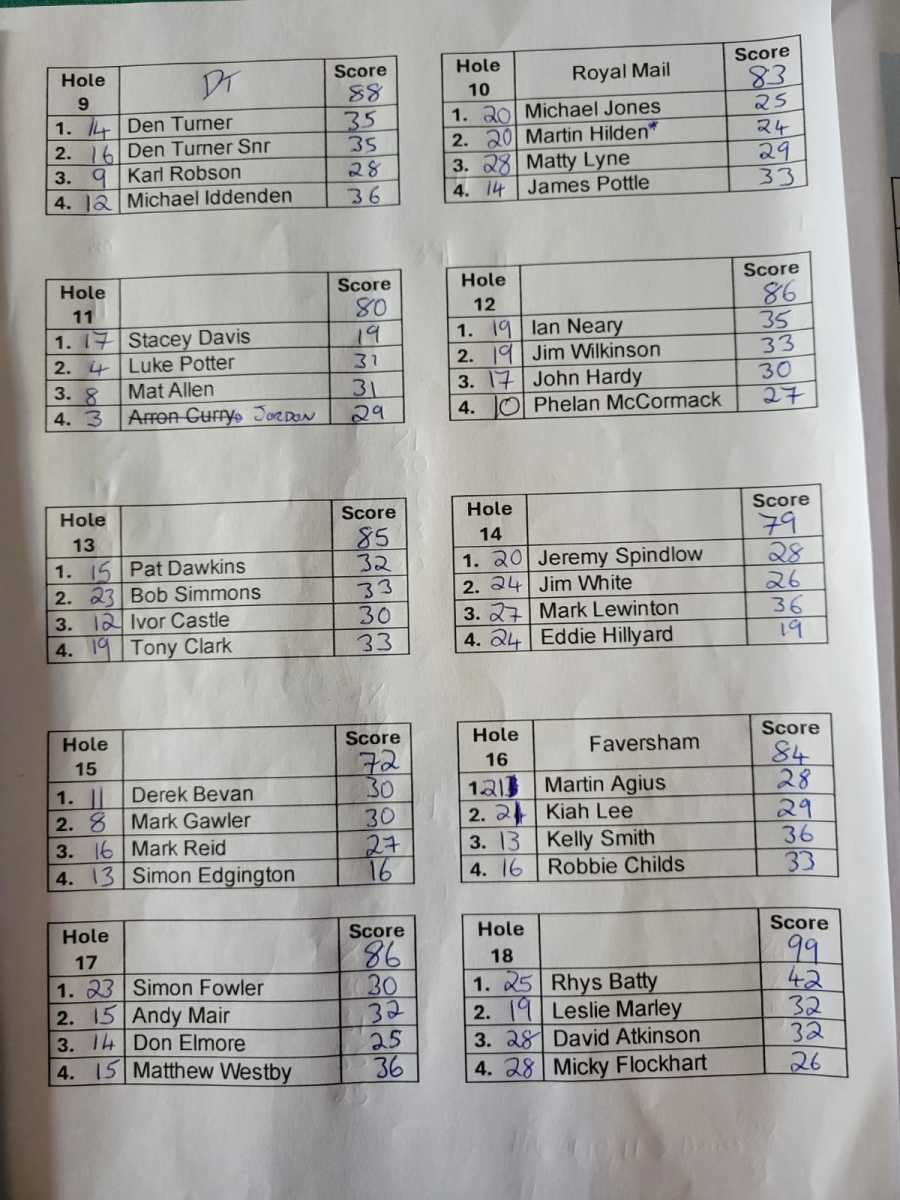 Hole 9 DT Score 88
1. 14 Den Turner 35
2. 16 Den Turner Snr 35
3. 9 Karl Robson 28
4. 12 Michael Iddenden 36
Hole 10 Royal Mail Score 83
1. 20 Michael Jones 25
2. 20 Martin Hilden* 24
3. 28 Matty Lyne 29
4. 14 James Pottle 33
Hole 11 Score 80
1. 17 Stacey Davis 19
2. 4 Luke Potter 31
3. 8 Mat Allen 31
4. 3 Arron Curry JORDAN 29
Hole 12 Score 86
1. 19 Ian Neary 35
2. 19 Jim Wilkinson 33
3. 17 John Hardy 30
4. 10 Phelan McCormack 27
Hole 13 Score 85
1. 15 Pat Dawkins 32
2. 23 Bob Simmons 33
3. 12 Ivor Castle 30
4. 19 Tony Clark 33
Hole 14 Score 79
1. 20 Jeremy Spindlow 28
2. 24 Jim White 26
3. 27 Mark Lewinton 36
4. 24 Eddie Hillyard 19
Hole 15 Score 72
1. 11 Derek Bevan 30
2. 8 Mark Gawler 30
3. 16 Mark Reid 27
4. 13 Simon Edgington 16
Hole 16 Faversham Score 84
1. Martin Agius 28
2. Kiah Lee 29
3. 13 Kelly Smith 36
4. 16 Robbie Childs 33
Hole 17 Score 86
1. 23 Simon Fowler 30
2. 15 Andy Mair 32
3. 14 Don Elmore 25
4. 15 Matthew Westby 36
Hole 18 Score 99
1. 25 Rhys Batty 42
2. 19 Leslie Marley 32
3. 28 David Atkinson 32
4. 28 Micky Flockhart 26